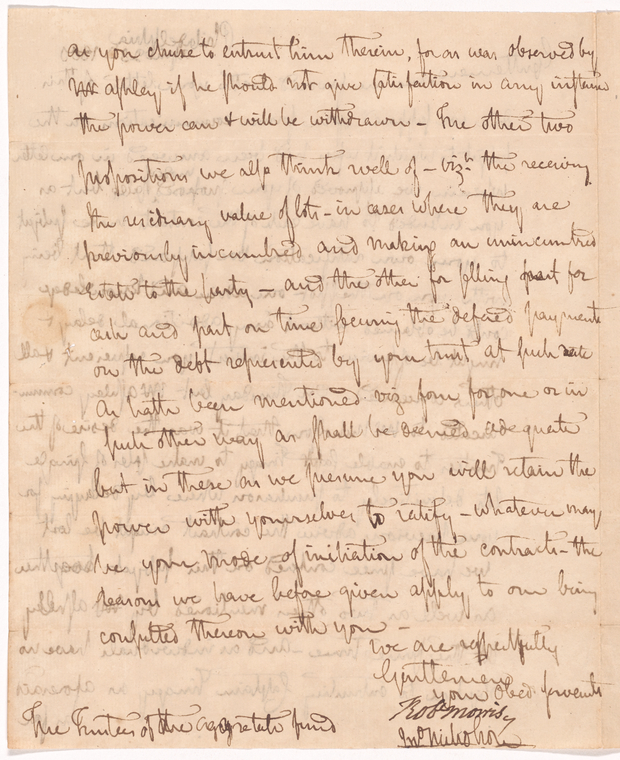 as you chuse to entrust him therein, for as was observed by
Mr Ashley if he should not give satisfaction in any instance
the power can & will be withdrawn – The other two
propositions we also think well of – vizt. the receiving
the residuary value of lots – in cases where they are
previously incumbred and making an unincumbred
Estate to the party – and the other for selling part for
cash and part on time securing the defered payments
on the debt represented by your trust at such rate
as hath been mentioned viz four for one or in
such other way as shall be deemed adequate
but in these as we presume you will retain the
power with yourselves to ratify – whatever may
be your mode of initiation of the contracts – the
reasons we have before given apply to our being
consulted thereon with you –
We are respectfully
Gentlemen
your Obed servants
Robt Morris
Jno Nicholson
The Trustees of the aggregate fund